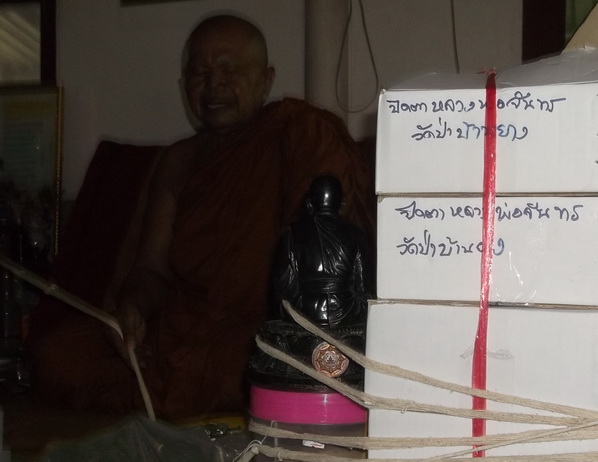 ปิดตา หลวงพ่อจันทร
วัดป่าบ้านยาง
ปิดตา หลวงพ่อจันทร
วัดป่าบ้านยาง